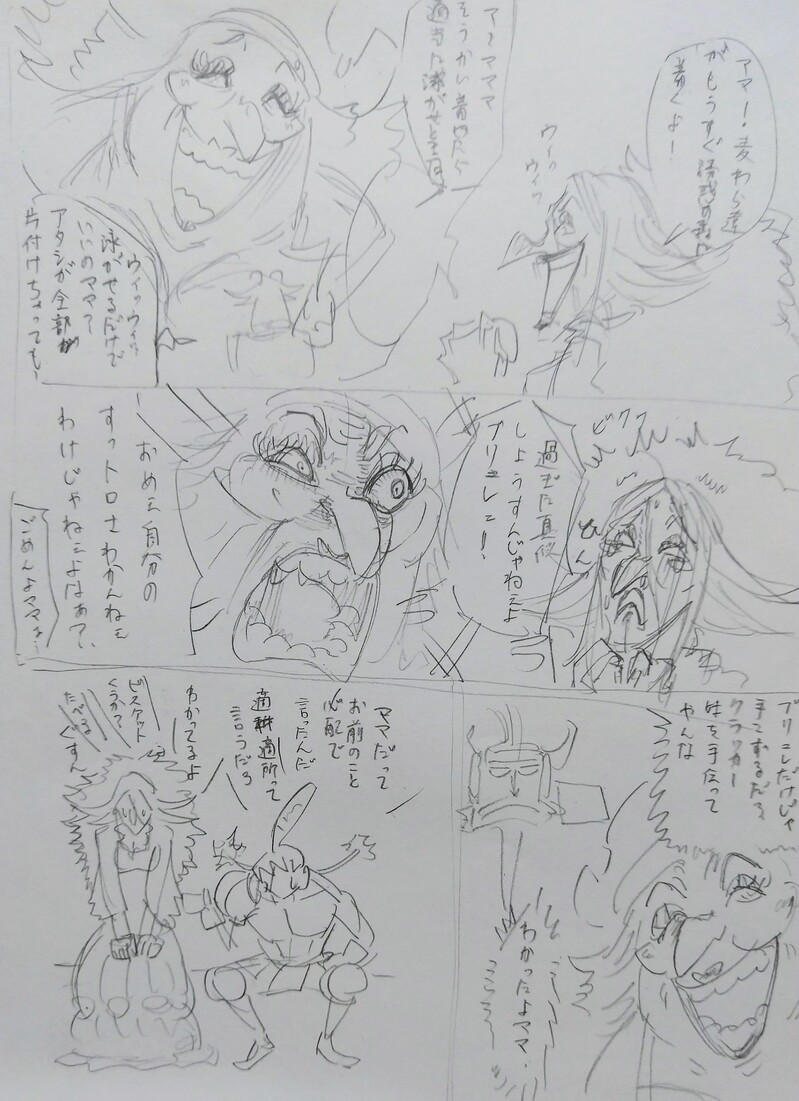 アマー！麦わら達
がもうすぐ誘惑の森に
着くよー！
ウィッ
ウィッ
ア〜ママママ
そうかい着いたら
適当に泳がせときな
ウィッウィッ
泳がせるだけで
いいのママ？
アタシが全部
片付けちゃっても、
ビクッ
ひん
過ぎた真似
しようすんじゃねェよ
ブリュレェ！
おめェ自分の
すっトロさわかんねェ
わけじゃねェよなあ？、
ごめんよママぁ…
ブリュレだけじゃ
手こずるだろ
クラッカー
妹を手伝って
やんな
わかったよママ、
ママだって
お前のこと
心配で
言ったんだ
適材適所って
言うだろ
わかってるよ
ビスケット
くうか？
たべる
ぐすん